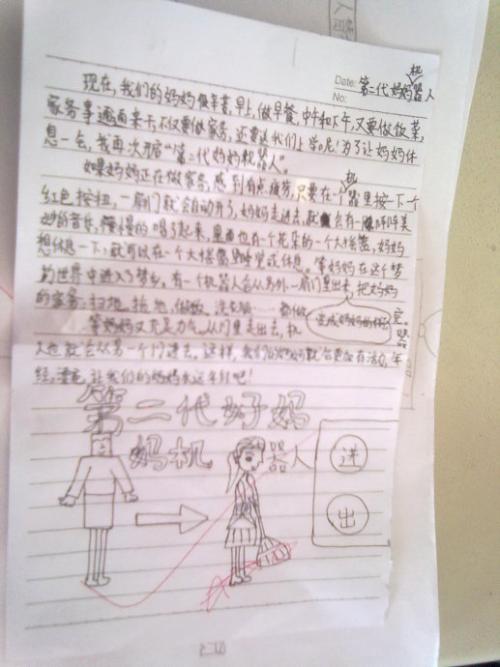 Date: 第二代妈妈机器人
No:
现在,我们的妈妈很辛苦,早上,做早餐,中午和下午,又要做饭菜,
家务事通通来干,不仅要做家务,还要送我们上学呢!为了让妈妈休
息一会,我再次开启“第二代妈妈机器人”。
如果妈妈正在做家务,感到有点疲劳,只要在机器里按一下个
红色按钮,一扇门就会自动开了,妈妈走进去,就会有一
妙的音乐,慢慢的唱了起来,里面也有一个花朵的一个大摇篮,妈妈
想休息一下,就可以在一个大摇篮里睡觉或休息。等妈妈在这个梦
的世界中进入了梦乡,有一个机器人会从另外一扇门里出来,把妈妈
的家务:扫地、拖地、做饭、洗衣服……都做完。
变成妈妈的样子
等妈妈又充足力气,从门里走出去,机器
人也就会从另一个门进去。这样,我们的妈妈就会更加有活力,年
轻,漂亮,让我们的妈妈永远年轻吧!
第二代好妈
妈机
器人
进
出